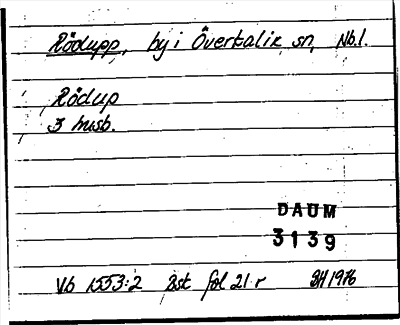 Rödupp, by i Överkalix sn, Nb.l.
Rödup
3 husb.
DAUM
3139
Vb 1553:2 Öst fol 21 r SH 1976